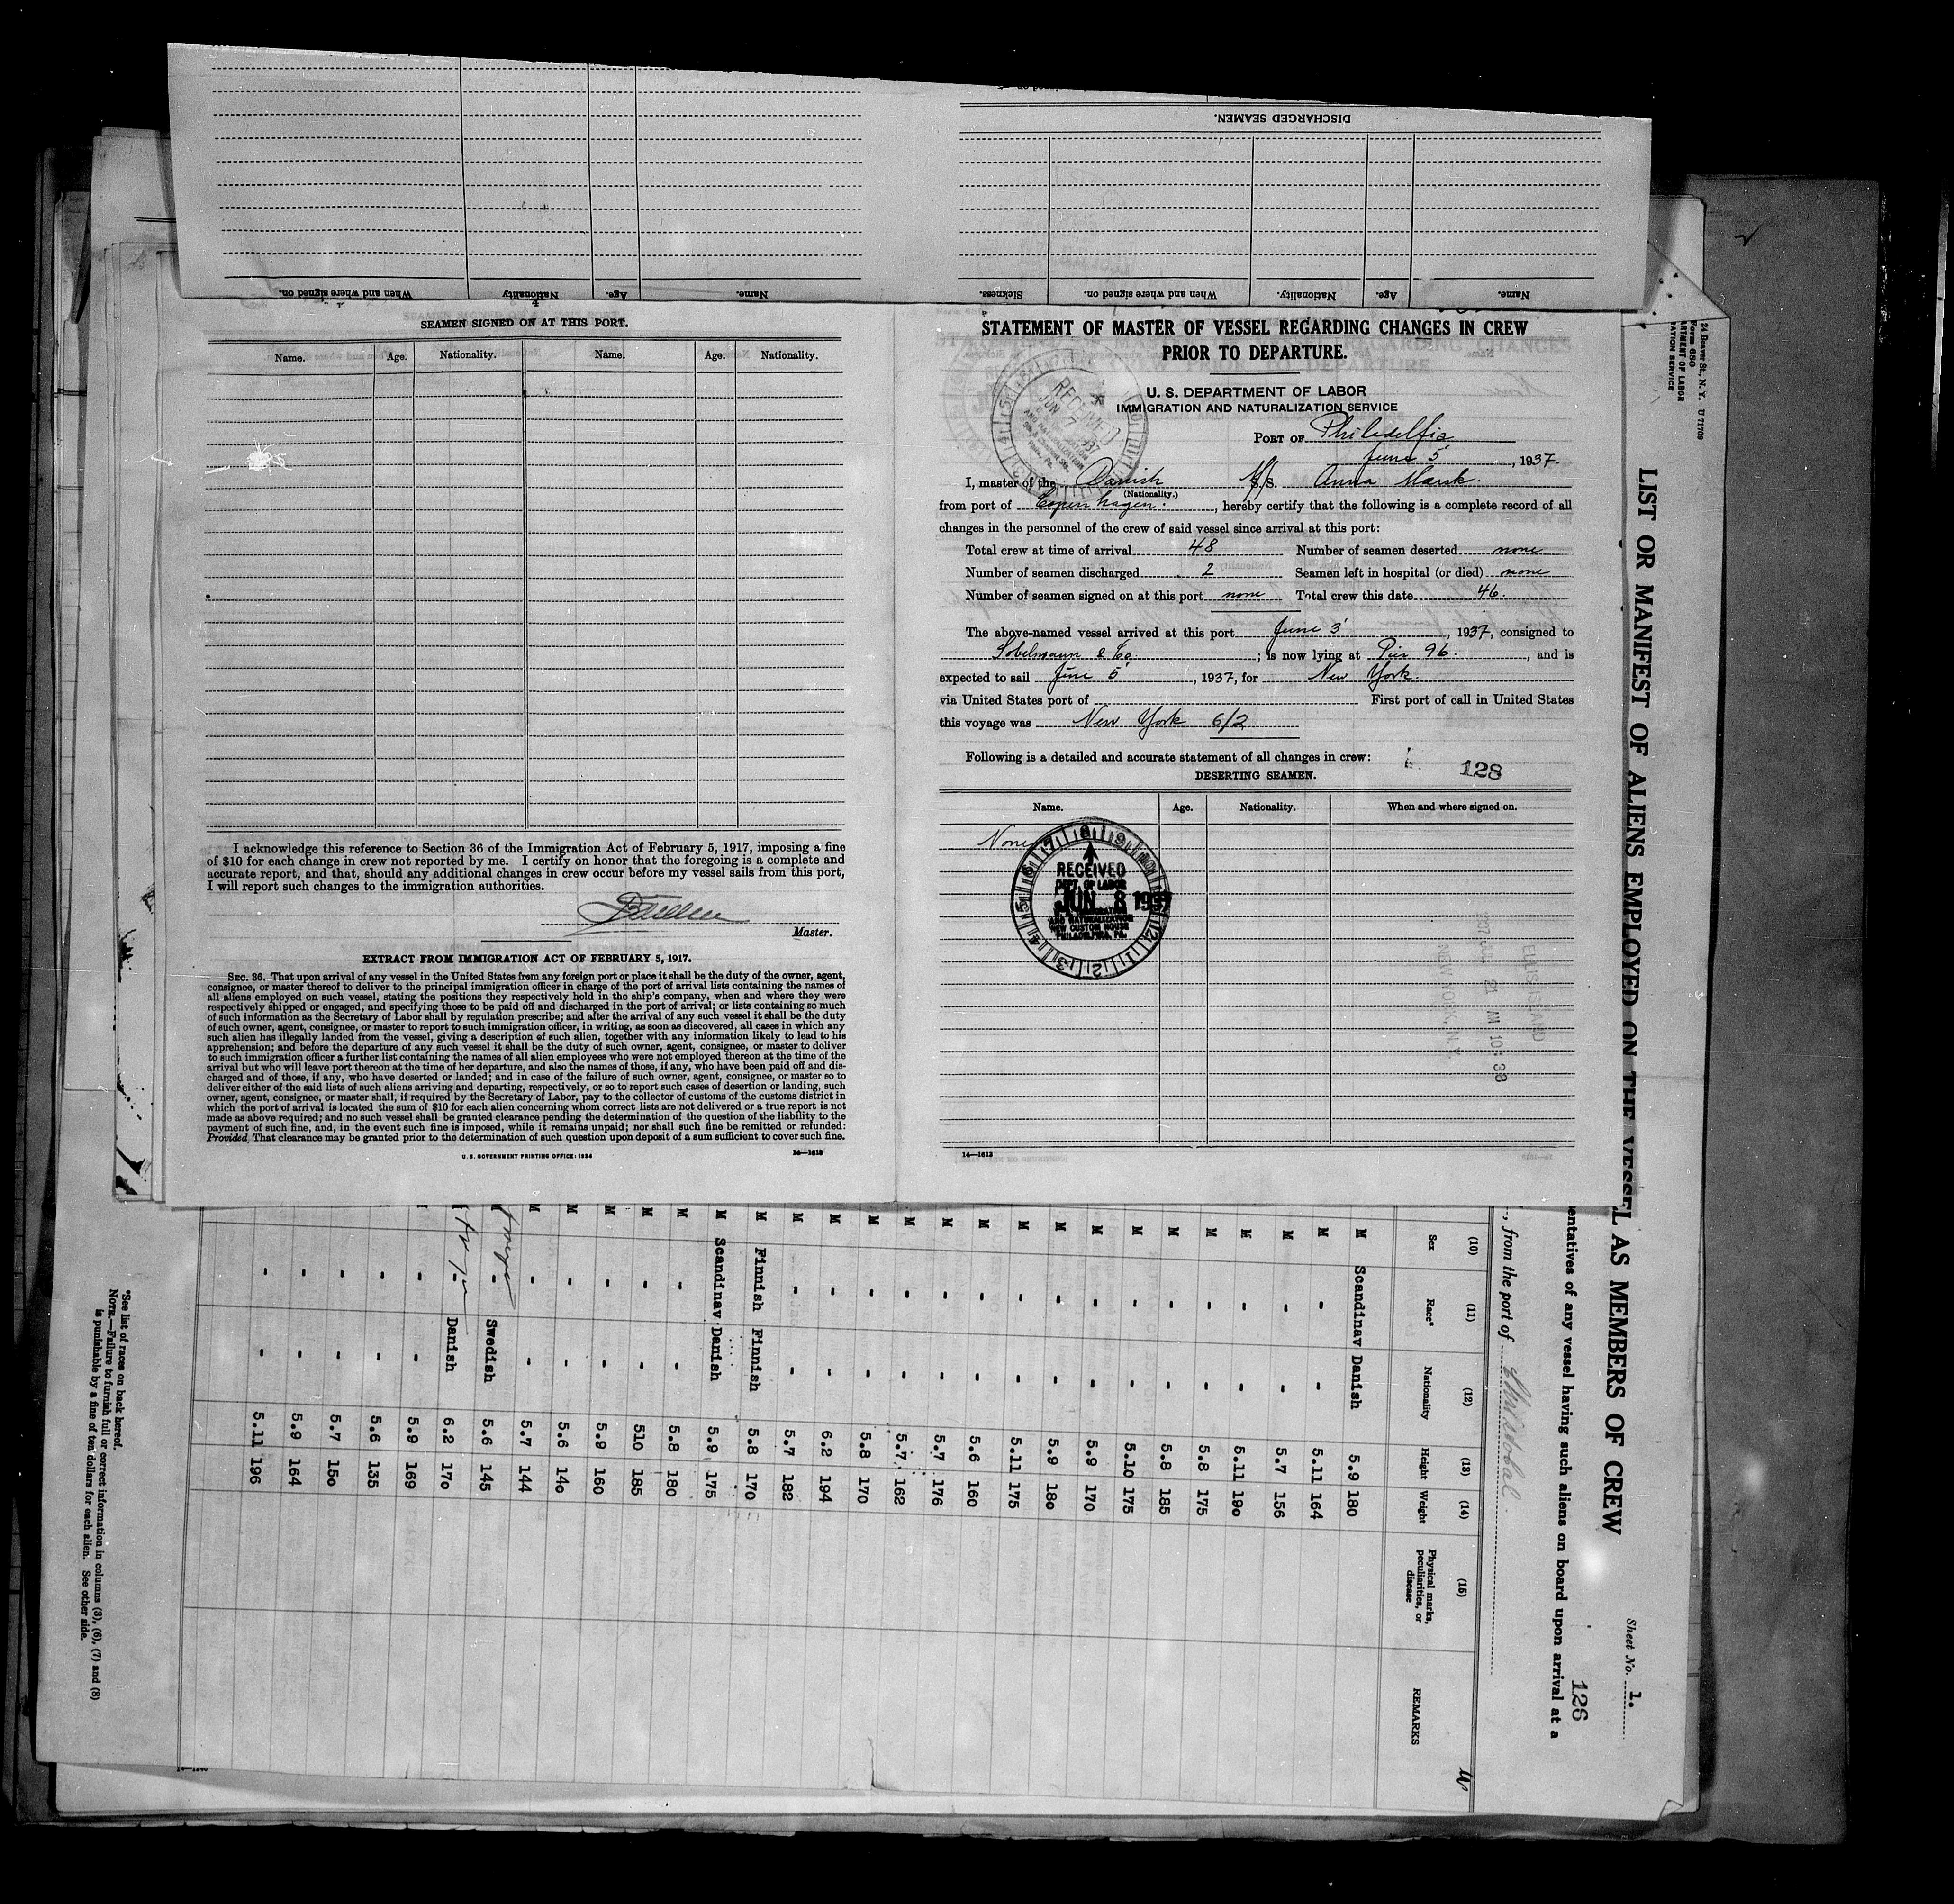 DISCHARGED SEAMEN.
Name. Age. Nationality. When and where signed on.
Name. Age. Nationality. When and where signed on. Sickness.
SEAMEN SIGNED ON AT THIS PORT.
Name. Age. Nationality. Name. Age. Nationality.
I acknowledge this reference to Section 36 of the Immigration Act of February 5, 1917, imposing a fine
of $10 for each change in crew not reported by me. I certify on honor that the foregoing is a complete and
accurate report, and that, should any additional changes in crew occur before my vessel sails from this port,
I will report such changes to the immigration authorities.
Master.
EXTRACT FROM IMMIGRATION ACT OF FEBRUARY 5, 1917.
SEC. 36. That upon arrival of any vessel in the United States from any foreign port or place it shall be the duty of the owner, agent,
consignee, or master thereof to deliver to the principal immigration officer in charge of the port of arrival lists containing the names of
all aliens employed on such vessel, stating the positions they respectively hold in the ship's company, when and where they were
respectively shipped or engaged, and specifying those to be paid off and discharged in the port of arrival; or lists containing so much
of such information as the Secretary of Labor shall by regulation prescribe; and after the arrival of any such vessel it shall be the duty
of such owner, agent, consignee, or master to report to such immigration officer, in writing, as soon as discovered, all cases in which any
such alien has illegally landed from the vessel, giving a description of such alien, together with any information likely to lead to his
apprehension; and before the departure of any such vessel it shall be the duty of such owner, agent, consignee, or master to deliver
to such immigration officer a further list containing the names of all alien employees who were not employed thereon at the time of the
arrival but who will leave port thereon at the time of her departure, and also the names of those, if any, who have been paid off and dis-
charged and of those, if any, who have deserted or landed; and in case of the failure of such owner, agent, consignee, or master so to
deliver either of the said lists of such aliens arriving and departing, respectively, or so to report such cases of desertion or landing, such
owner, agent, consignee, or master shall, if required by the Secretary of Labor, pay to the collector of customs of the customs district in
which the port of arrival is located the sum of $10 for each alien concerning whom correct lists are not delivered or a true report is not
made as above required; and no such vessel shall be granted clearance pending the determination of the question of the liability to the
payment of such fine, and, in the event such fine is imposed, while it remains unpaid; nor shall such fine be remitted or refunded:
Provided, That clearance may be granted prior to the determination of such question upon deposit of a sum sufficient to cover such fine.
U. S. GOVERNMENT PRINTING OFFICE: 1934 14—1613
STATEMENT OF MASTER OF VESSEL REGARDING CHANGES IN CREW
PRIOR TO DEPARTURE.
U. S. DEPARTMENT OF LABOR
IMMIGRATION AND NATURALIZATION SERVICE
RECEIVED
JUN 7 1937
PORT OF Philadelfia
June 5, 1937.
I, master of the Danish M/S. Anna Mærsk.
(Nationality.)
from port of Copenhagen., hereby certify that the following is a complete record of all
changes in the personnel of the crew of said vessel since arrival at this port:
Total crew at time of arrival 48 Number of seamen deserted none
Number of seamen discharged 2 Seamen left in hospital (or died) none
Number of seamen signed on at this port none Total crew this date 46.
The above-named vessel arrived at this port June 3', 1937, consigned to
Sobelmann & Co. ; is now lying at Pier 96., and is
expected to sail June 5', 1937, for New York.
via United States port of First port of call in United States
this voyage was New York 6/2
Following is a detailed and accurate statement of all changes in crew: 128
DESERTING SEAMEN.
Name. Age. Nationality. When and where signed on.
None
RECEIVED
DEPT. OF LABOR
JUN 8 1937
IMMIGRATION
AND NATURALIZATION
NEW CUSTOM HOUSE
PHILADELPHIA, PA.
ELLIS ISLAND
21 AM 10:33
NEW YORK, N.Y.
14—1613
24 Beaver St., N. Y. U 71709
Form 680
ARTMENT OF LABOR
RATION SERVICE
LIST OR MANIFEST OF ALIENS EMPLOYED ON THE VESSEL AS MEMBERS OF CREW
Sheet No. 1.
126
entatives of any vessel having such aliens on board upon arrival at a
, from the port of Christobal.
(10) (11) (12) (13) (14) (15)
Sex Race* Nationality Height Weight Physical marks, peculiarities, or disease REMARKS
M Scandinav Danish 5.9 180
M - - 5.11 164
M - - 5.7 156
M - - 5.11 190
M - - 5.8 175
M - - 5.8 185
M - - 5.10 175
M - - 5.9 170
M - - 5.9 180
M - - 5.11 175
M - - 5.6 160
M - - 5.7 176
M - - 5.7 162
M - - 5.8 170
M - - 6.2 194
M - - 5.7 182
M Finnish Finnish 5.8 170
M Scandinav Danish 5.9 175
M - - 5.8 180
M - - 510 185
M - - 5.9 160
M - - 5.6 140
M - - 5.7 144
- Swedish 5.6 145
- Danish 6.2 170
- - 5.9 169
- - 5.6 135
- - 5.7 150
- - 5.9 164
- - 5.11 196
*See list of races on back hereof.
NOTE.—Failure to furnish full or correct information in columns (3), (6), (7) and (8)
is punishable by a fine of ten dollars for each alien. See other side.